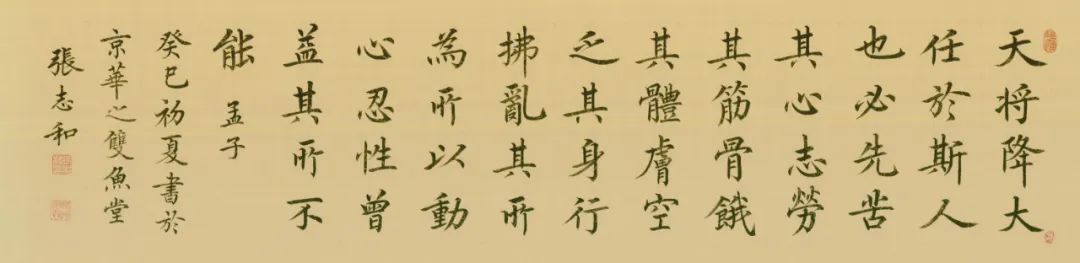 天将降大
任於斯人
也必先苦
其心志勞
其筋骨餓
其體膚空
乏其身行
拂亂其所
為所以動
心忍性曾
益其所不
能 孟子
癸巳初夏書於
京華之雙魚堂
張志和